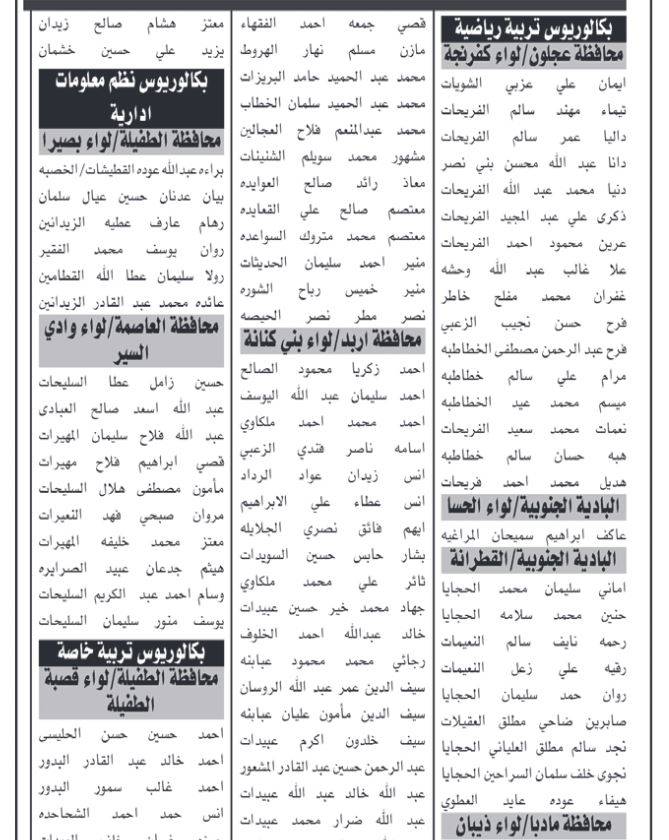 بكالوريوس تربية رياضية
محافظة عجلون/لواء كفرنجة
ايمان علي عزبي الشويات
تيماء مهند سالم الفريحات
داليا عمر سالم الفريحات
دانا عبد الله محسن بني نصر
دنيا محمد عبد الله الفريحات
ذكرى علي عبد المجيد الفريحات
عرين محمود احمد الفريحات
علا غالب عبد الله وحشه
غفران محمد مفلح خاطر
فرح حسن نجيب الزعبي
فرح عبد الرحمن مصطفى الخطاطبه
مرام علي سالم خطاطبه
ميسم محمد عيد الخطاطبه
نعمات محمد سعيد الفريحات
هبه حسان سالم خطاطبه
هديل محمد احمد فريحات
البادية الجنوبية/لواء الحسا
عاكف ابراهيم سميحان المراغيه
البادية الجنوبية/القطرانة
اماني سليمان محمد الحجايا
حنين محمد سلامه الحجايا
رحمه نايف سالم النعيمات
رقيه علي زعل النعيمات
روان حمد سليمان الحجايا
صابرين ضاحي مطلق العقيلات
نجد سالم مطلق العلياني الحجايا
نجوى خلف سلمان السراحين الحجايا
هيفاء عوده عايد العطوي
محافظة مادبا/لواء ذيبان
قصي جمعه احمد الفقهاء
مازن مسلم نهار الهروط
محمد عبد الحميد حامد البريزات
محمد عبد الحميد سلمان الخطاب
محمد عبدالمنعم فلاح العجالين
مشهور محمد سويلم الشنينات
معاذ رائد صالح العوايده
معتصم صالح علي القعايده
معتصم محمد متروك السواعده
منير احمد سليمان الحديثات
منير خميس رباح الشوره
نصر مطر نصر الحيصه
محافظة اربد/لواء بني كنانة
احمد زكريا محمود الصالح
احمد سليمان عبد الله اليوسف
احمد محمد احمد ملكاوي
اسامه ناصر فندي الزعبي
انس زيدان عواد الرداد
انس عطاء علي الابراهيم
ايهم فائق نصري الجلايله
بشار حابس حسين السويدات
ثائر علي محمد ملكاوي
جهاد محمد خير حسين عبيدات
خالد عبدالله احمد الخلوف
رجائي محمد محمود عبابنه
سيف الدين عمر عبد الله الروسان
سيف الدين مأمون عليان عبابنه
سيف خلدون اكرم عبيدات
عبد الرحمن حسين عبد القادر المشعور
عبد الله خالد عبد الله عبيدات
عبد الله ضرار محمد عبيدات
معتز هشام صالح زيدان
يزيد علي حسين خشمان
بكالوريوس نظم معلومات
ادارية
محافظة الطفيلة/لواء بصيرا
براءه عبدالله عوده القطيشات/الخصبه
بيان عدنان حسين عيال سلمان
رهام عارف عطيه الزيدانين
روان يوسف محمد الفقير
رولا سليمان عطا الله القطامين
عائده محمد عبد القادر الزيدانين
محافظة العاصمة/لواء وادي
السير
حسين زامل عطا السليحات
عبد الله اسعد صالح العبادى
عبد الله فلاح سليمان المهيرات
قصي ابراهيم فلاح مهيرات
مأمون مصطفى هلال السليحات
مروان صبحي فهد النعيرات
معتز محمد خليفه المهيرات
هيثم جدعان عبيد الصرايره
وسام احمد عبد الكريم السليحات
يوسف منور سليمان السليحات
بكالوريوس تربية خاصة
محافظة الطفيلة/لواء قصبة
الطفيلة
احمد حسين حسن الحليسى
احمد خالد عبد القادر البدور
احمد غالب سمور البدور
انس حمد احمد الشحاحده